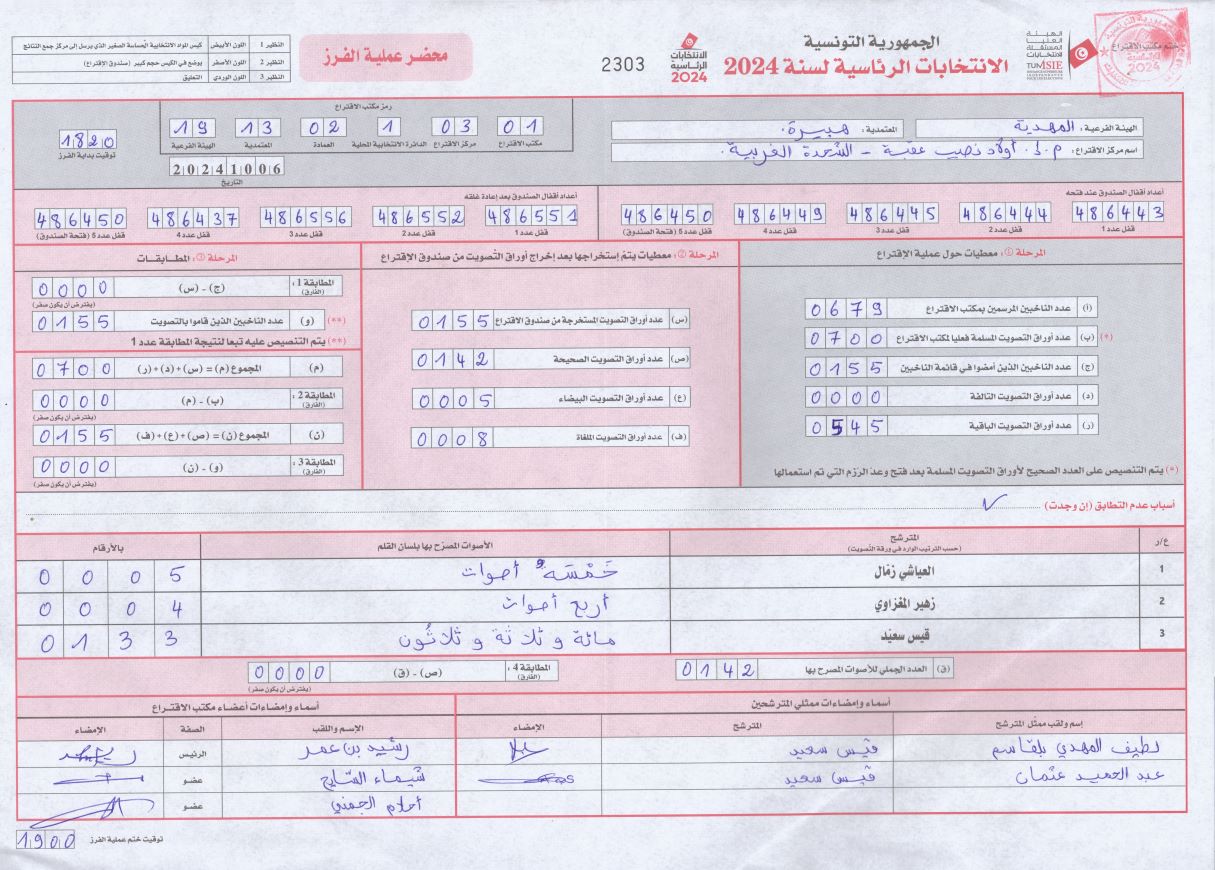 الجمهورية التونسية
الانتخابات الرئاسية لسنة 2024
الهيئة العليا المستقلة للانتخابات
TUNISIE
ختم مكتب الاقتراع
الانتخابات الرئاسية 2024
2303
محضر عملية الفرز
النظير 1 اللون الأبيض كيس المواد الانتخابية الحساسة الصغير الذي يرسل إلى مركز جمع النتائج
النظير 2 اللون الأصفر يوضع في الكيس حجم كبير (صندوق الإقتراع)
النظير 3 اللون الوردي التعليق
الهيئة الفرعية : المهدية المعتمدية : هبيرة.
اسم مركز الاقتراع : م.إ. أولاد نصيب عقبة - الشعدة الغربية.
رمز مكتب الاقتراع
01 03 1 02 13 19
مكتب الاقتراع مركز الاقتراع الدائرة الانتخابية المحلية العمادة المعتمدية الهيئة الفرعية
1820
توقيت بداية الفرز
20241006
التاريخ
أعداد أقفال الصندوق عند فتحه
486443 486444 486445 486449 486450
قفل عدد 1 قفل عدد 2 قفل عدد 3 قفل عدد 4 قفل عدد 5 (فتحة الصندوق)
أعداد أقفال الصندوق بعد إعادة غلقه
486551 486552 486556 486437 486450
قفل عدد 1 قفل عدد 2 قفل عدد 3 قفل عدد 4 قفل عدد 5 (فتحة الصندوق)
المرحلة ①: معطيات حول عملية الإقتراع
(أ) عدد الناخبين المرسمين بمكتب الاقتراع 0679
(*) (ب) عدد أوراق التصويت المسلمة فعليا لمكتب الاقتراع 0700
(ج) عدد الناخبين الذين أمضوا في قائمة الناخبين 0155
(د) عدد أوراق التصويت التالفة 0000
(ر) عدد أوراق التصويت الباقية 0545
(*) يتم التنصيص على العدد الصحيح لأوراق التصويت المسلمة بعد فتح وعدّ الرّزم التي تم استعمالها
المرحلة ②: معطيات يتمّ إستخراجها بعد إخراج أوراق التصويت من صندوق الإقتراع
(س) عدد أوراق التصويت المستخرجة من صندوق الاقتراع 0155
(ص) عدد أوراق التصويت الصحيحة 0142
(ع) عدد أوراق التصويت البيضاء 0005
(ف) عدد أوراق التصويت الملغاة 0008
المرحلة ③: المطابقات
المطابقة 1 : (الفارق) (ج) - (س) 0000
(يفترض أن يكون صفر)
(**) (و) عدد الناخبين الذين قاموا بالتصويت 0155
(**) يتم التنصيص عليه تبعا لنتيجة المطابقة عدد 1
(م) المجموع (م) = (س) + (د) + (ر) 0700
المطابقة 2 : (الفارق) (ب) - (م) 0000
(يفترض أن يكون صفر)
(ن) المجموع (ن) = (ص) + (ع) + (ف) 0155
المطابقة 3 : (الفارق) (و) - (ن) 0000
(يفترض أن يكون صفر)
أسباب عدم التطابق (إن وجدت)
ع/ر المترشح (حسب الترتيب الوارد في ورقة التصويت) الأصوات المصرّح بها بلسان القلم بالأرقام
1 العياشي زمّال خَمْسَة أصوات 0005
2 زهير المغزاوي أربع أصوات 0004
3 قيس سعيّد مائة و ثلاثة و ثلاثُون 0133
(ق) العدد الجملي للأصوات المصرح بها 0142 المطابقة 4 : (الفارق) (ص) - (ق) 0000
(يفترض أن يكون صفر)
أسماء وإمضاءات ممثلي المترشحين
إسم ولقب ممثّل المترشح المترشح الإمضاء
لطيف المهدي بلقاسم قيس سعيد
عبد الحميد عثمان قيس سعيد
أسماء وإمضاءات أعضاء مكتب الاقتراع
الإسم واللقب الصفة الإمضاء
رشيد بن عمر الرئيس
شيماء السّايح عضو
أحلام الجمني عضو
توقيت ختم عملية الفرز 1900